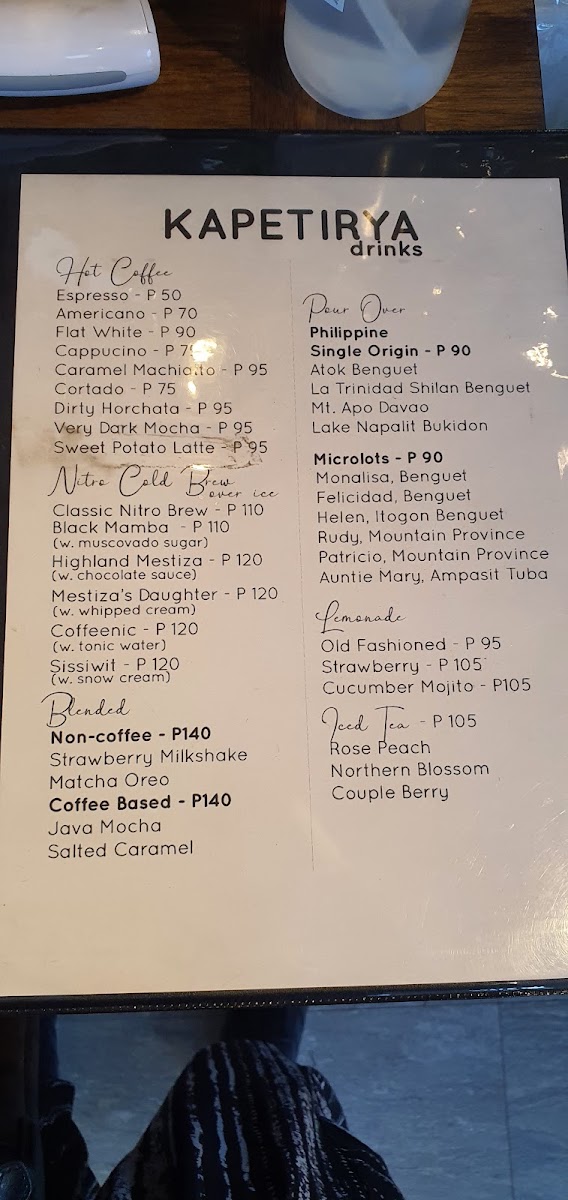 KAPETIRYA
drinks
Hot Coffee
Espresso - P 50
Americano - P 70
Flat White - P 90
Cappucino - P 75
Caramel Machiatto - P 95
Cortado - P 75
Dirty Horchata - P 95
Very Dark Mocha - P 95
Sweet Potato Latte - P 95
Nitro Cold Brew
over ice
Classic Nitro Brew - P 110
Black Mamba - P 110
(w. muscovado sugar)
Highland Mestiza - P 120
(w. chocolate sauce)
Mestiza's Daughter - P 120
(w. whipped cream)
Coffeenic - P 120
(w. tonic water)
Sissiwit - P 120
(w. snow cream)
Blended
Non-coffee - P140
Strawberry Milkshake
Matcha Oreo
Coffee Based - P140
Java Mocha
Salted Caramel
Pour Over
Philippine
Single Origin - P 90
Atok Benguet
La Trinidad Shilan Benguet
Mt. Apo Davao
Lake Napalit Bukidon
Microlots - P 90
Monalisa, Benguet
Felicidad, Benguet
Helen, Itogon Benguet
Rudy, Mountain Province
Patricio, Mountain Province
Auntie Mary, Ampasit Tuba
Lemonade
Old Fashioned - P 95
Strawberry - P 105
Cucumber Mojito - P105
Iced Tea - P 105
Rose Peach
Northern Blossom
Couple Berry